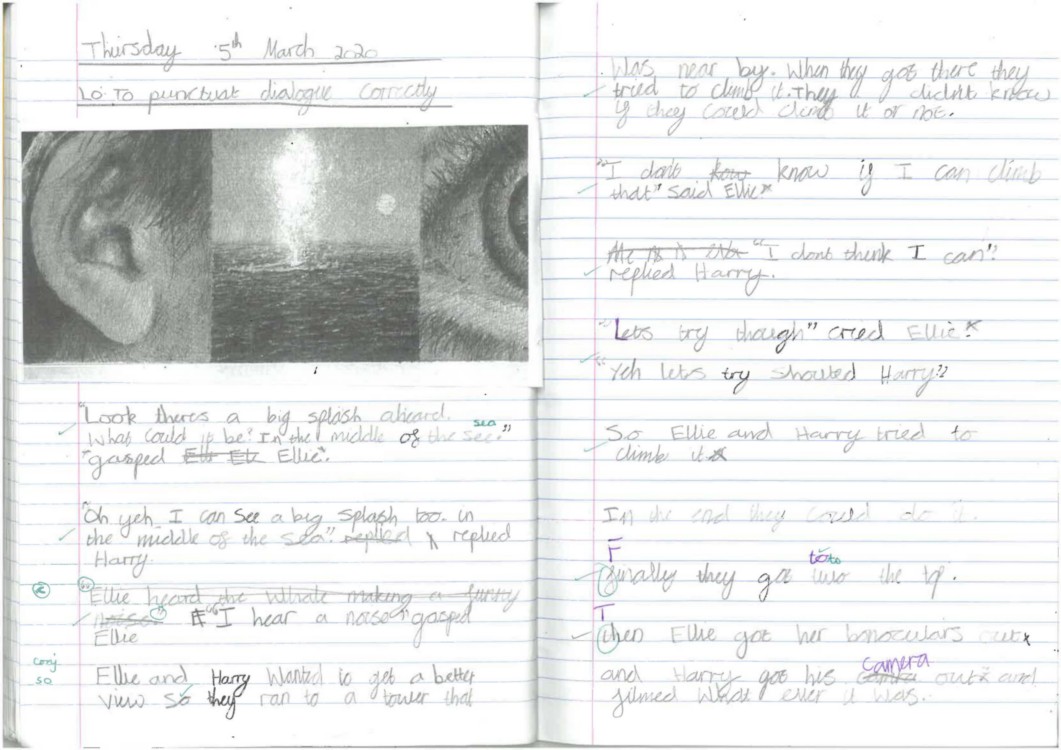 Thursday 5th March 2020
LO: To punctuat dialogue correctly
"Look theres a big splash aheard.
What could it be? In the middle of the see." sea
"gasped Ellie".
"Oh yeh I can see a big splash too. in
the middle of the sea". replied replied
Harry.
Ellie heard the whale making a funny
noise "I hear a noise" gasped
Ellie
conj
so
Ellie and Harry wanted to get a better
view so they ran to a tower that
was near by. When they got there they
tried to climb it. They didn't know
if they could climb it or not.
"I dont kow know if I can climb
that" said Ellie
"I dont think I can"
replied Harry.
"Lets try though" cried Ellie
"Yeh lets try shouted Harry"
So Ellie and Harry tried to
climb it
In the end they could do it.
F
finally they got two to the top.
T
then Ellie got her banoculars out
and Harry got his camera out and
filmed what ever it was.